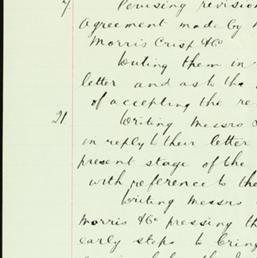 Perusing revision
agreement made by
Morris Crisp &Co
Writing them in
letter and as to the
of accepting the re
21 Writing Messrs
in reply to their letter
present stage of the
with reference to the
Writing Messrs
Morris &Co pressing th
early steps to bring